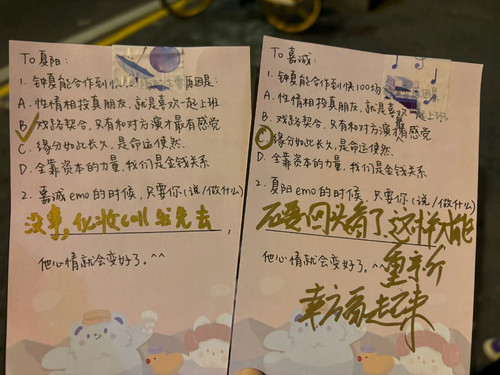 To 夏阳:
1. 钟夏能合作到快
原因是:
A. 性情相投真朋友,就是喜欢一起上班
B. 戏路契合,只有和对方演才最有感觉
C. 缘分如此长久,是命运使然
D. 全靠资本的力量,我们是金钱关系
2. 嘉诚emo的时候,只要你(说/做什么)
没事,化妆
先去,
他心情就会变好了。^^
To 嘉诚:
1. 钟夏能合作到快100场
A. 性情相投真朋友,就是喜欢一起上班
B. 戏路契合,只有和对方演才最有感觉
C. 缘分如此长久,是命运使然
D. 全靠资本的力量,我们是金钱关系
2. 夏阳emo的时候,只要你(说/做什么)
不要回头看了,这样才能
他心情就会变好了。^^
重新
幸福起来